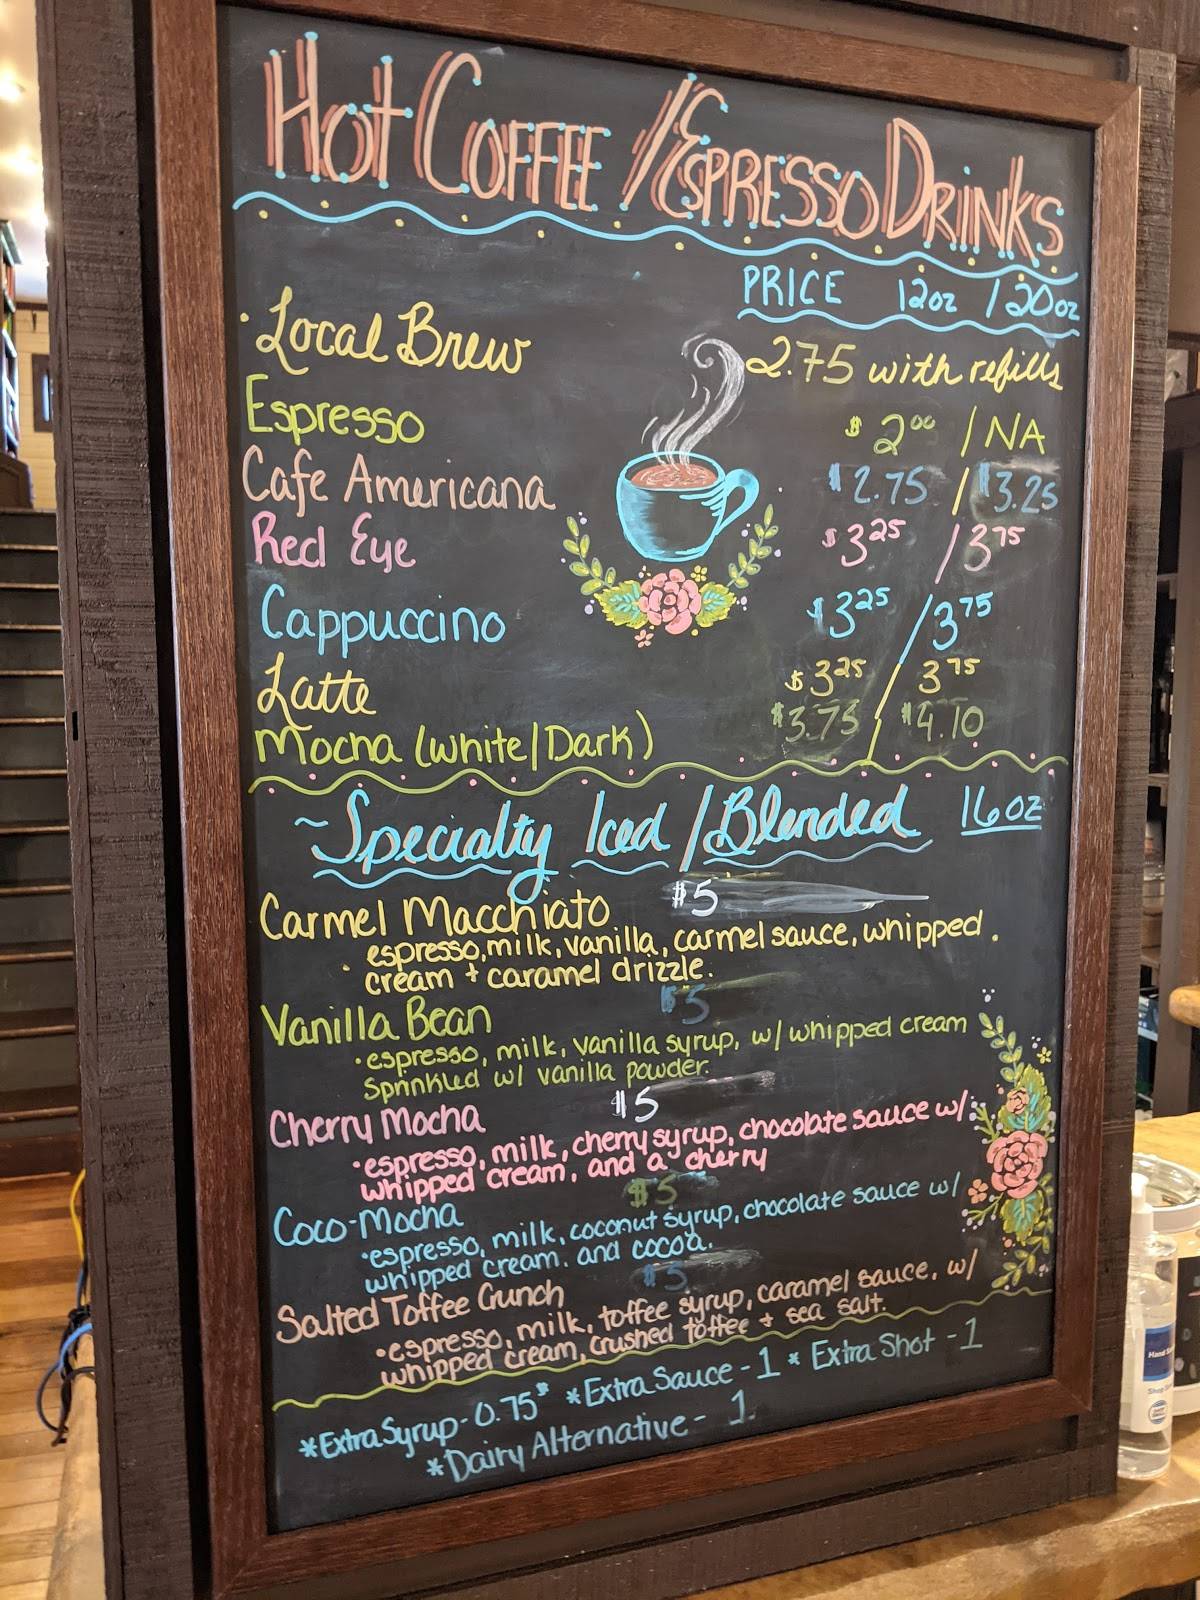 Hot Coffee / Espresso Drinks
PRICE 12oz / 20oz
· Local Brew 2.75 with refills
Espresso $2.00 / NA
Cafe Americana $2.75 / $3.25
Red Eye $3.25 / 3.75
Cappuccino $3.25 / 3.75
Latte $3.25 / 3.75
Mocha (White/Dark) $3.75 / $4.10
~Specialty Iced / Blended 16oz
Carmel Macchiato $5
· espresso, milk, vanilla, carmel sauce, whipped
cream + caramel drizzle.
Vanilla Bean $5
· espresso, milk, vanilla syrup, w/ whipped cream
Sprinkled w/ vanilla powder.
Cherry Mocha $5
· espresso, milk, cherry syrup, chocolate sauce w/
whipped cream, and a cherry
Coco-Mocha $5
· espresso, milk, coconut syrup, chocolate sauce w/
whipped cream. and cocoa.
Salted Toffee Crunch $5
· espresso, milk, toffee syrup, caramel sauce, w/
whipped cream, crushed toffee + sea salt.
*Extra Syrup - 0.75* *Extra Sauce - 1 * Extra Shot - 1
*Dairy Alternative - 1